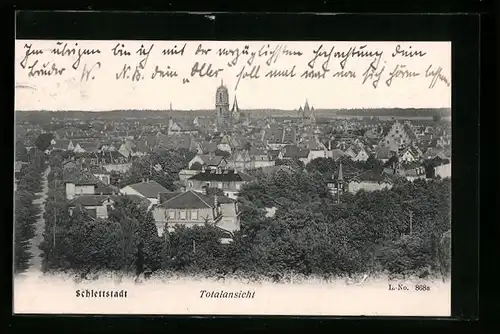 Im übrigen bin ich mit der vorzüglichsten Hochachtung dein
Bruder W. N.B. dein "Oller" soll mal was von sich hören lassen
Schlettstadt Totalansicht L.-No. 868a